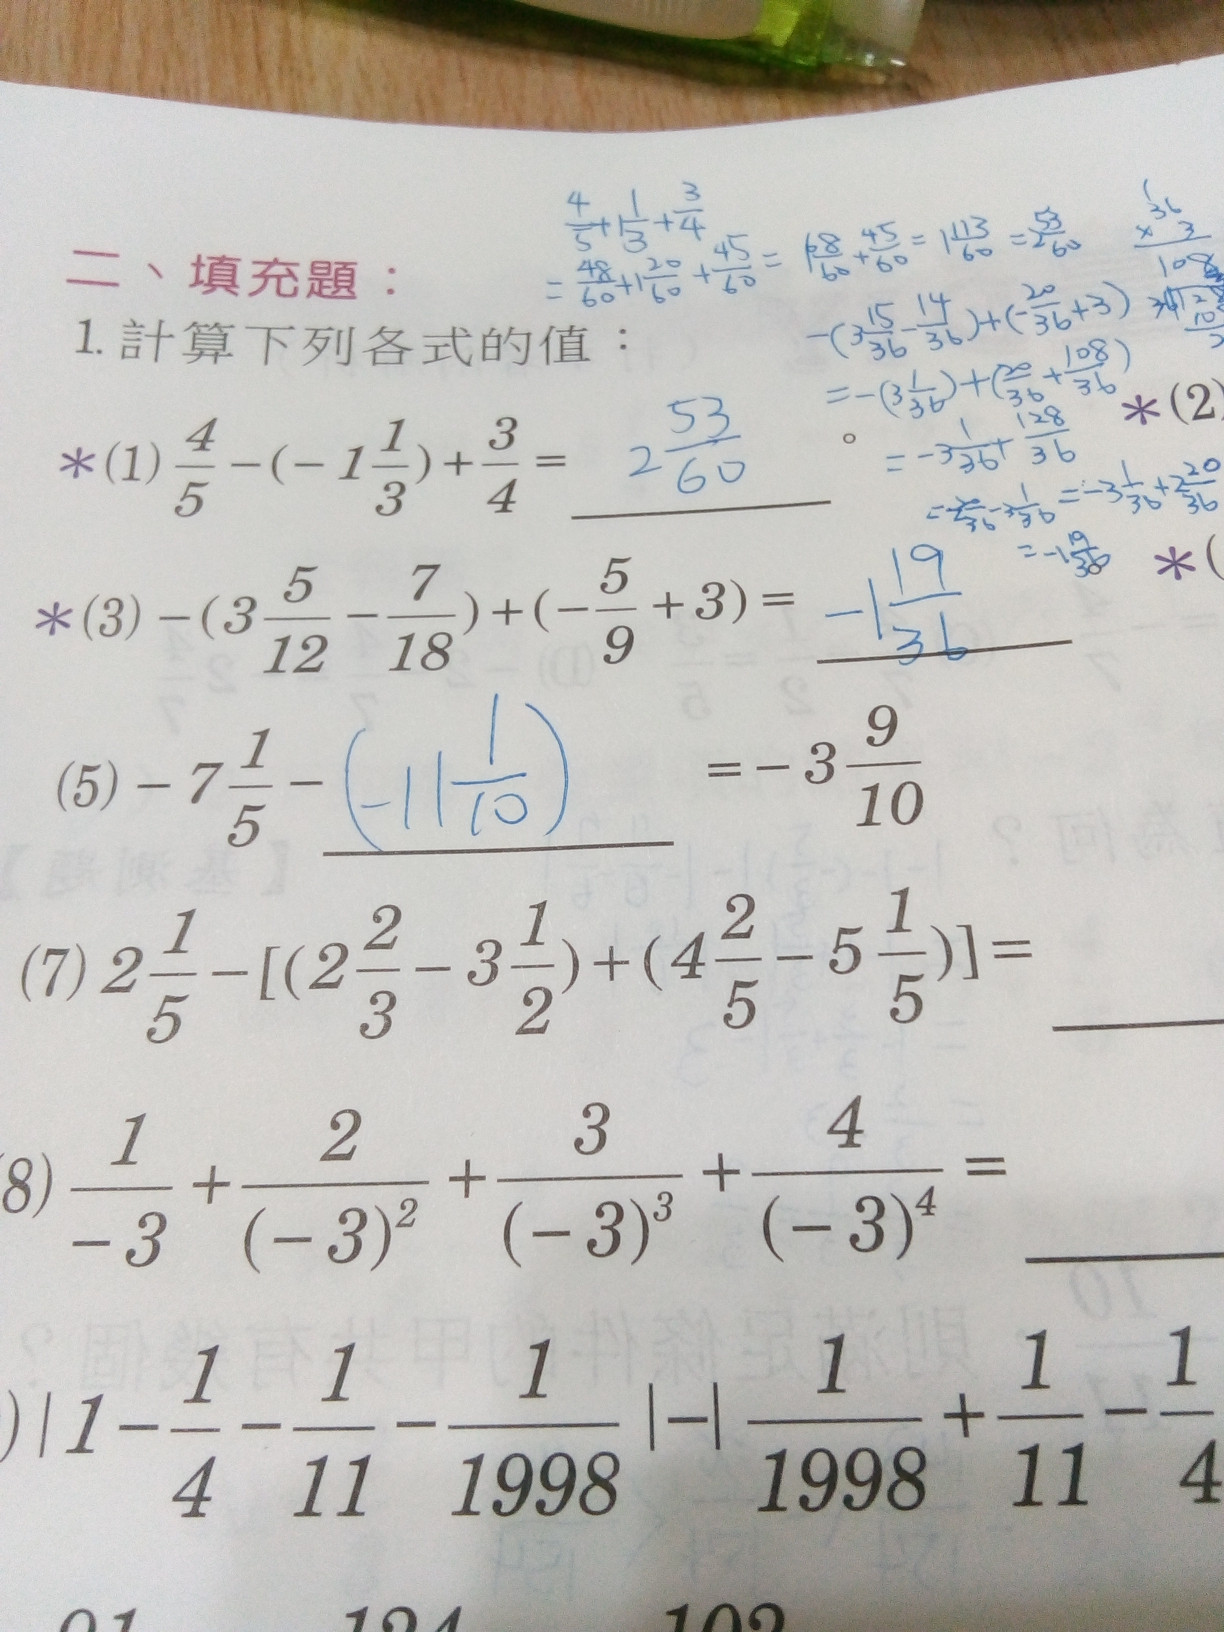 二、填充題：
4/5+1 1/3+3/4
=48/60+1 20/60+45/60=1 68/60+45/60=1 113/60=2 53/60
36
× 3
108
1. 計算下列各式的值：
-(3 15/36-14/36)+(-20/36+3)
=-(3 1/36)+(20/36+108/36)
=-3 1/36+128/36
=-3 1/36+2 20/36
=-1 19/36
*(1) 4/5-(-1 1/3)+3/4= 2 53/60 。 *(2)
*(3) -(3 5/12-7/18)+(-5/9+3)= -1 19/36 *(
(5) -7 1/5-(-11 1/10) =-3 9/10
(7) 2 1/5-[(2 2/3-3 1/2)+(4 2/5-5 1/5)]=
(8) 1/-3+2/(-3)²+3/(-3)³+4/(-3)⁴=
)|1-1/4-1/11-1/1998|-|1/1998+1/11-1/4